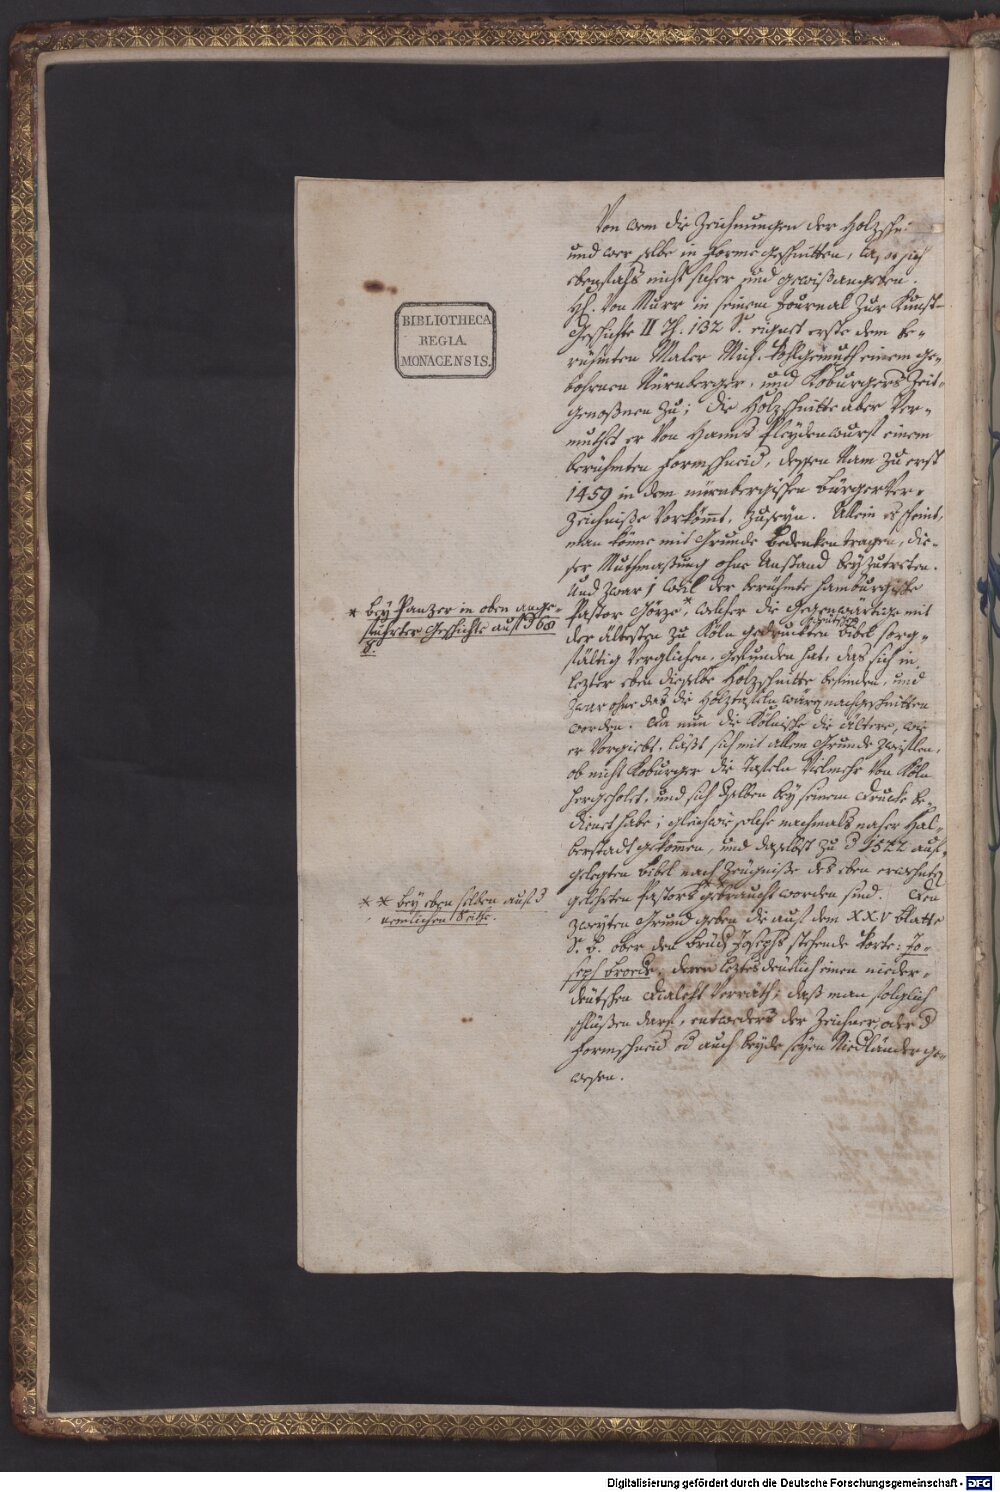 BIBLIOTHECA
REGIA
MONACENSIS.
Von wem die Zeichnungen der Holzschni
und wer selbe in Forme geschnitten, läßt sich
ebenfals nicht sicher und gewiß angeben.
H. Von Murr in seinem Journal zur Kunst-
Geschichte II Th. 132 S. eignet erste dem be-
rühmten Maler Mich. Wohlgemuth einem ge-
bohrnen Nürnberger, und Koburgers Zeit-
genoßnen zu; die Holzschnitte aber Ver-
muthet er Von Hanns Pleydenwurst einem
berühmten Formschneid, dessen Nam zu erst
1459 in dem nürnbergischen Bürger Ver-
zeichniße Vorkömmt, zuseyn. Allein es scheint,
man könne mit Grunde bedenken tragen, die-
ser Muthmaßung ohne Anstand beyzutreten.
Und zwar 1 weil der berühmte hamburgische
Pastor Götze *, welcher die gegenwärtige mit
der ältesten zu Köln gedruckten deutschen Bibel sorg-
fältig Verglichen, gefunden hat, das sich in
lezter eben dieselbe Holzschnitte befinden, und
zwar ohne das die Holztafeln wären nachgeschnitten
worden. Da nun die Kölnische die ältere, wie
er Vorgiebt, läßt sich mit allem Grunde zweiflen,
ob nicht Koburger die Tafeln Vielmehr Von Köln
hergeholet, und sich derselben bey seinem Drucke be-
dienet habe; gleichwie solche nachmals nacher Hal-
berstadt gekommen, und daselbst zu d 1522 auf-
gelegten Bibel nach Zeugniße des eben erwehnten
gelehrten Pastors ** gebraucht worden sind. Den
zweyten Grund geben die auf dem XXV Blatte
S. b. ober den Brüd Josephs stehende Worte: Jo-
seph broede, deren leztes deutlich einen nieder-
deutschen Dialekt Verräth; daß man folglich
schlüßen darf, entweders der Zeichner, oder d
Formschneid od auch beyde seyen Niedländer ge-
wesen.
* bey Panzer in oben ange-
führter Geschichte auf d 68
S.
* * bey eben selben auf d
nemlichen Seite.
Digitalisierung gefördert durch die Deutsche Forschungsgemeinschaft - DFG